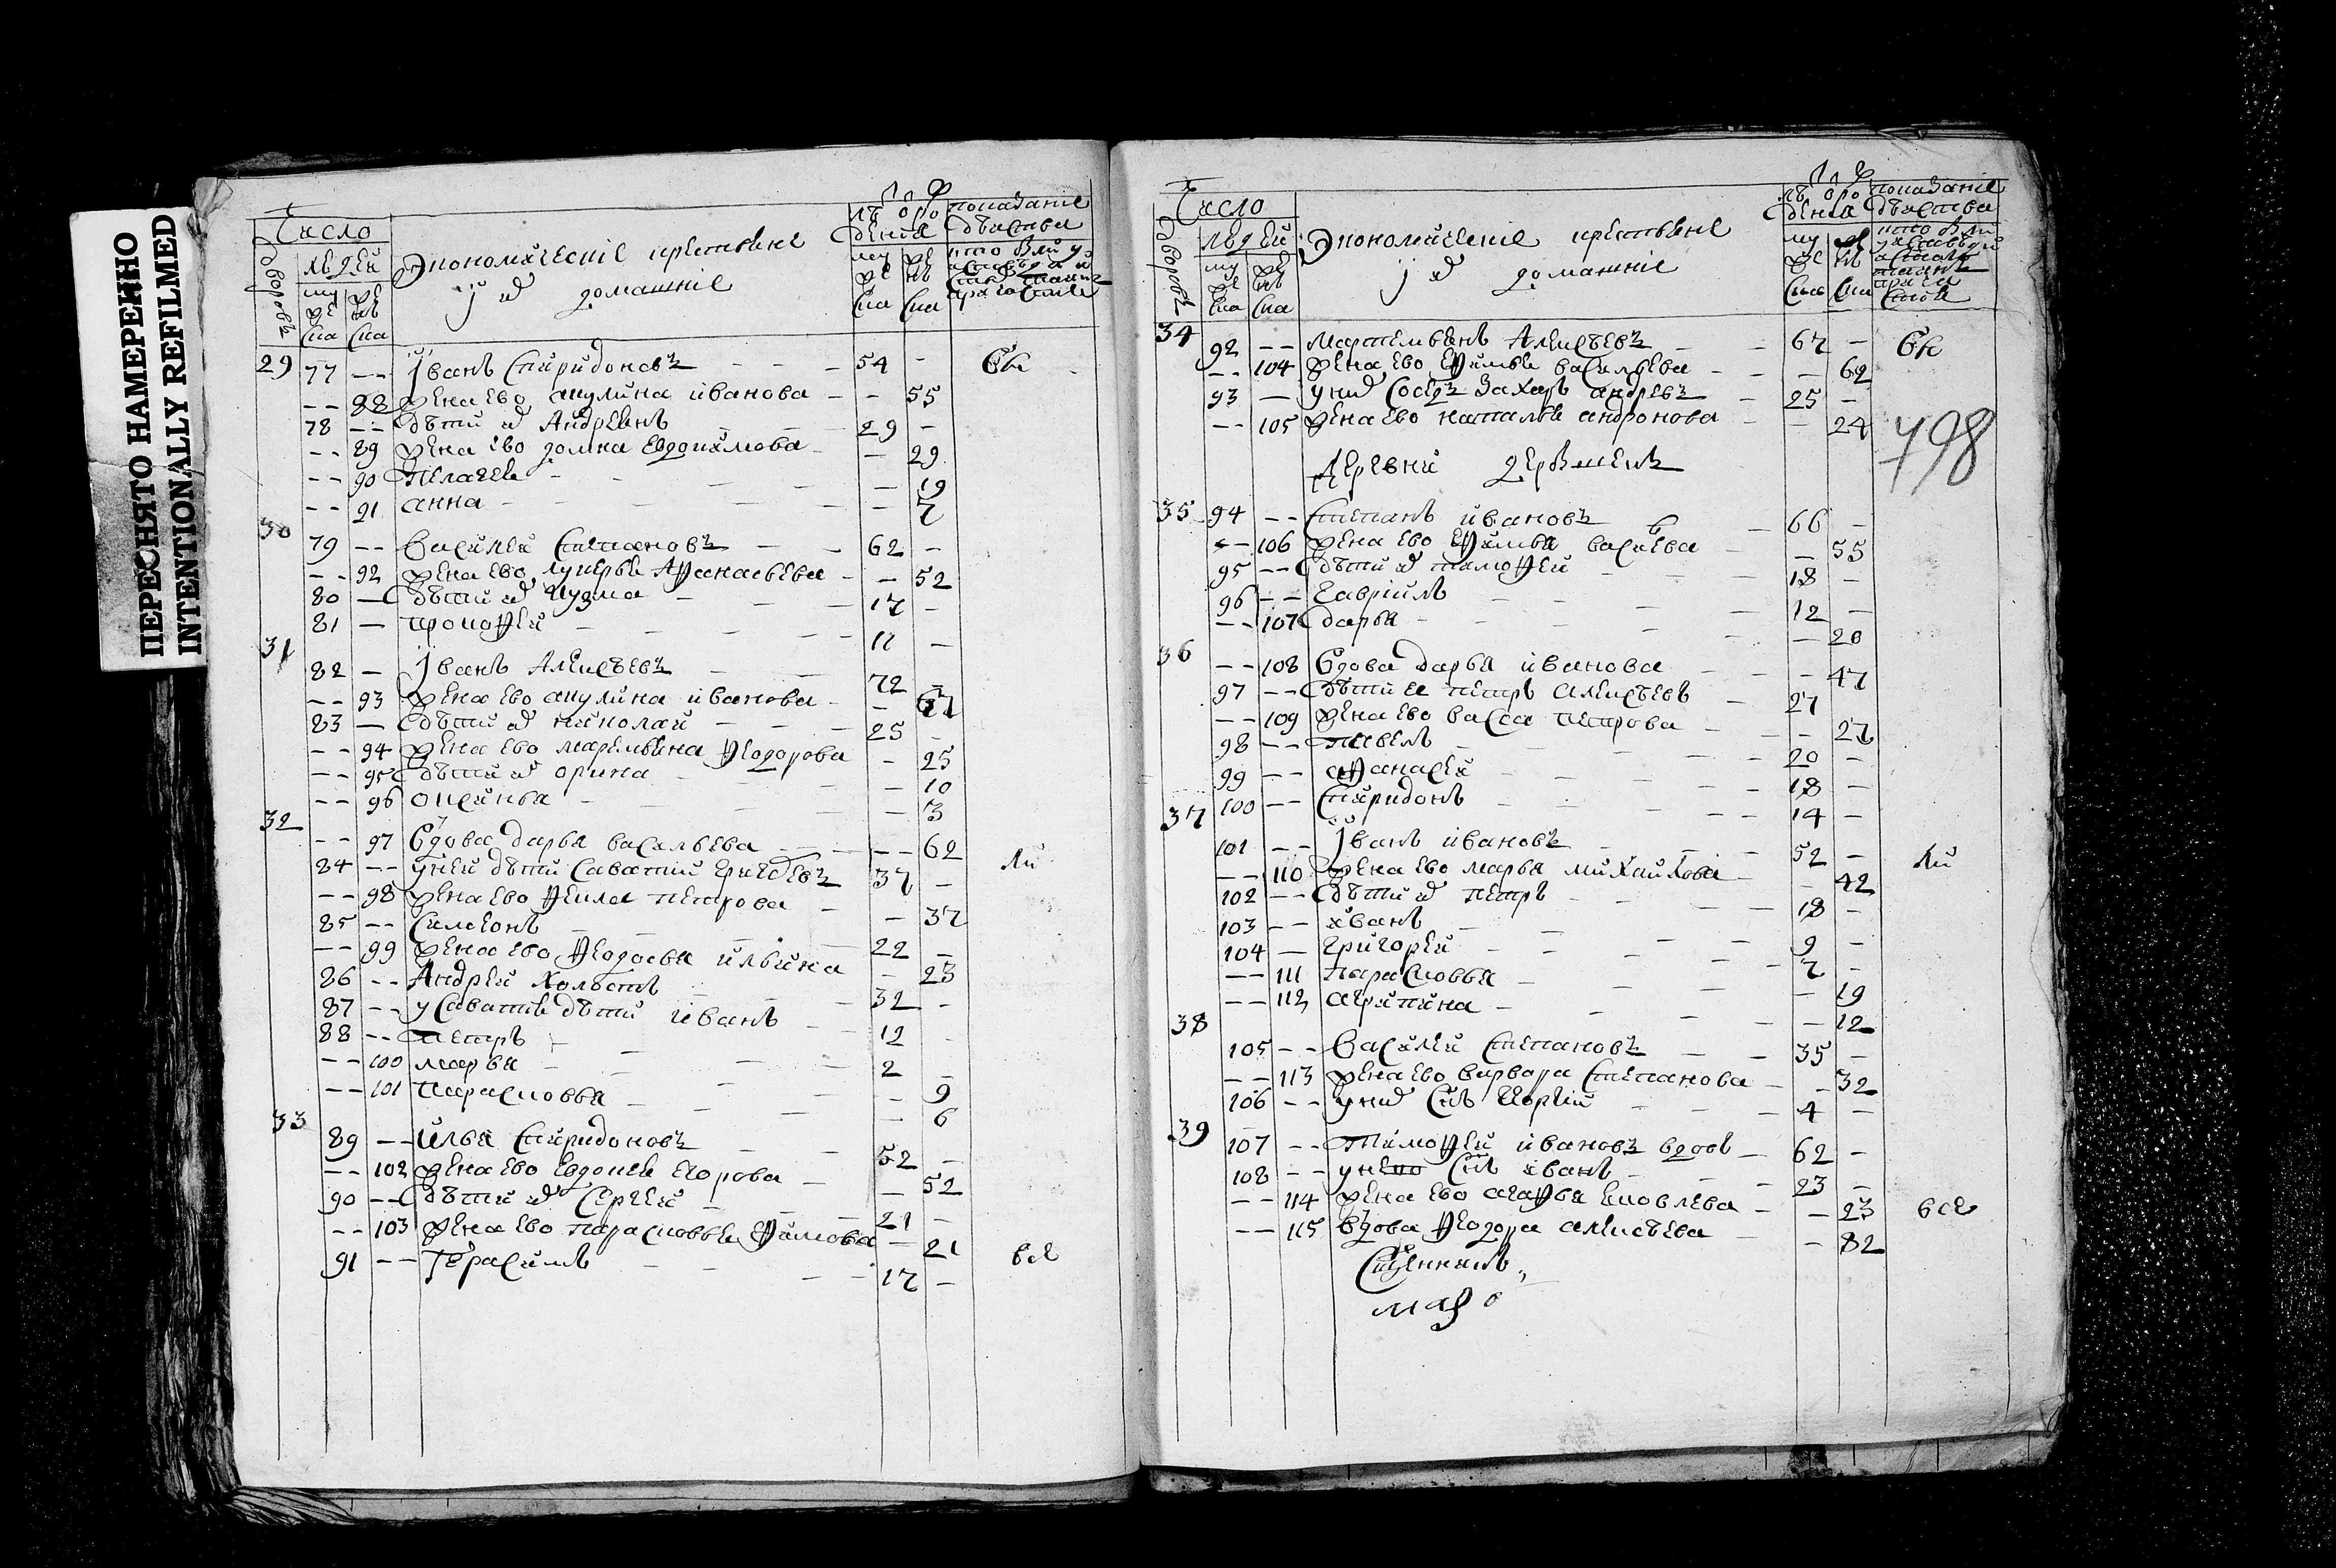 ПЕРЕСНЯТО НАМЕРЕННО
INTENTIONALLY REFILMED
Число
дворовъ
людей
муж
ска
жен
ска
Экономическіе крестьяне
и их домашніе
показаніе
действа
29 77 -- Іванъ Спиридоновъ - - - 54 -
-- 88 жена ево акулина иванова - - 55
78 -- дѣти их Андреянъ 29 -
-- 89 жена ево домна Евдокимова - - 29
-- 90 Пелагея - - 19
-- 91 анна - - - - 7
30
79 -- Василей Степановъ - - 62 -
-- 92 жена ево лукерья Афанасьева - - 52
80 -- дѣти их Кузма - - - 17 -
81 -- прокофей - - - - 11 -
31
82 - Іванъ Алексѣевъ - - 72 -
-- 93 жена ево акулина иванова - - 67
83 -- дѣти их николай - - 25 -
-- 94 жена ево маремьяна Федорова - 25
-- 95 дѣти их орина - - 10
-- 96 оксинья - - 3
32
-- 97 вдова дарья васильева - - -- 62
84 -- у ней дѣти Саватий 37 -
-- 98 жена ево Фекла петрова - - 37
85 -- Симеонъ - - - 22 -
-- 99 жена ево Федосья ильина - 23
86 -- Андрей холостъ - 32 -
87 -- у Саватия дѣти иванъ - - 12 -
88 -- петръ - - - 2 -
-- 100 марья - - - - 9
-- 101 парасковья - - - - 6
33
89 -- илья Спиридоновъ - - 52 -
-- 102 жена ево Евдокея Егорова - - 52
90 -- дѣти их Сергей - - 21 -
-- 103 жена ево парасковья Ефимова - 21
91 -- Герасимъ - - - - 17 - все
Число
дворовъ
людей
муж
ска
жен
ска
Экономическіе крестьяне
и их домашніе
показаніе
действа
34
92 -- мартемьянъ Алексѣевъ - - 67 -
-- 104 жена ево Ефимья васильева - - - 62
93 -- у них Сосед Захаръ андреевъ - 25 -
-- 105 жена ево наталья андронова - - 24
798
Деревни
35 94 -- Степанъ ивановъ - 66 -
-- 106 жена ево Ефимья - 55
95 -- дѣти их тимофей - - - 18 -
96 -- гаврійлъ - - - - 12 -
-- 107 дарья - - - - - 20
36
-- 108 вдова дарья иванова - - - 47
97 -- дѣти ея петръ алексѣевъ - 27 -
-- 109 жена ево васса петрова - - - 27
98 -- павелъ - - - - 20 -
99 -- афанасей - - - - 18 -
100 -- Спиридонъ - - - 14 -
37
101 -- Іванъ ивановъ - - 52 -
-- 110 жена ево марья михайлова - - 42
102 -- дѣти их петръ - - - 18 -
103 -- иванъ - - - - 9 -
104 -- григорей - - - - 7 -
-- 111 парасковья - - - - 19
-- 112 агрипина - - - - 12
38
105 -- Василей Степановъ - - 35 -
-- 113 жена ево варвара Степанова - - 32
106 -- у них Снъ - - 4 -
39
107 -- Тимофей ивановъ вдовъ - 62 -
108 -- у нево Снъ иванъ - - 23 -
-- 114 жена ево агафья яковлева - - 23
-- 115 вдова Федора алексѣева - - 82 все